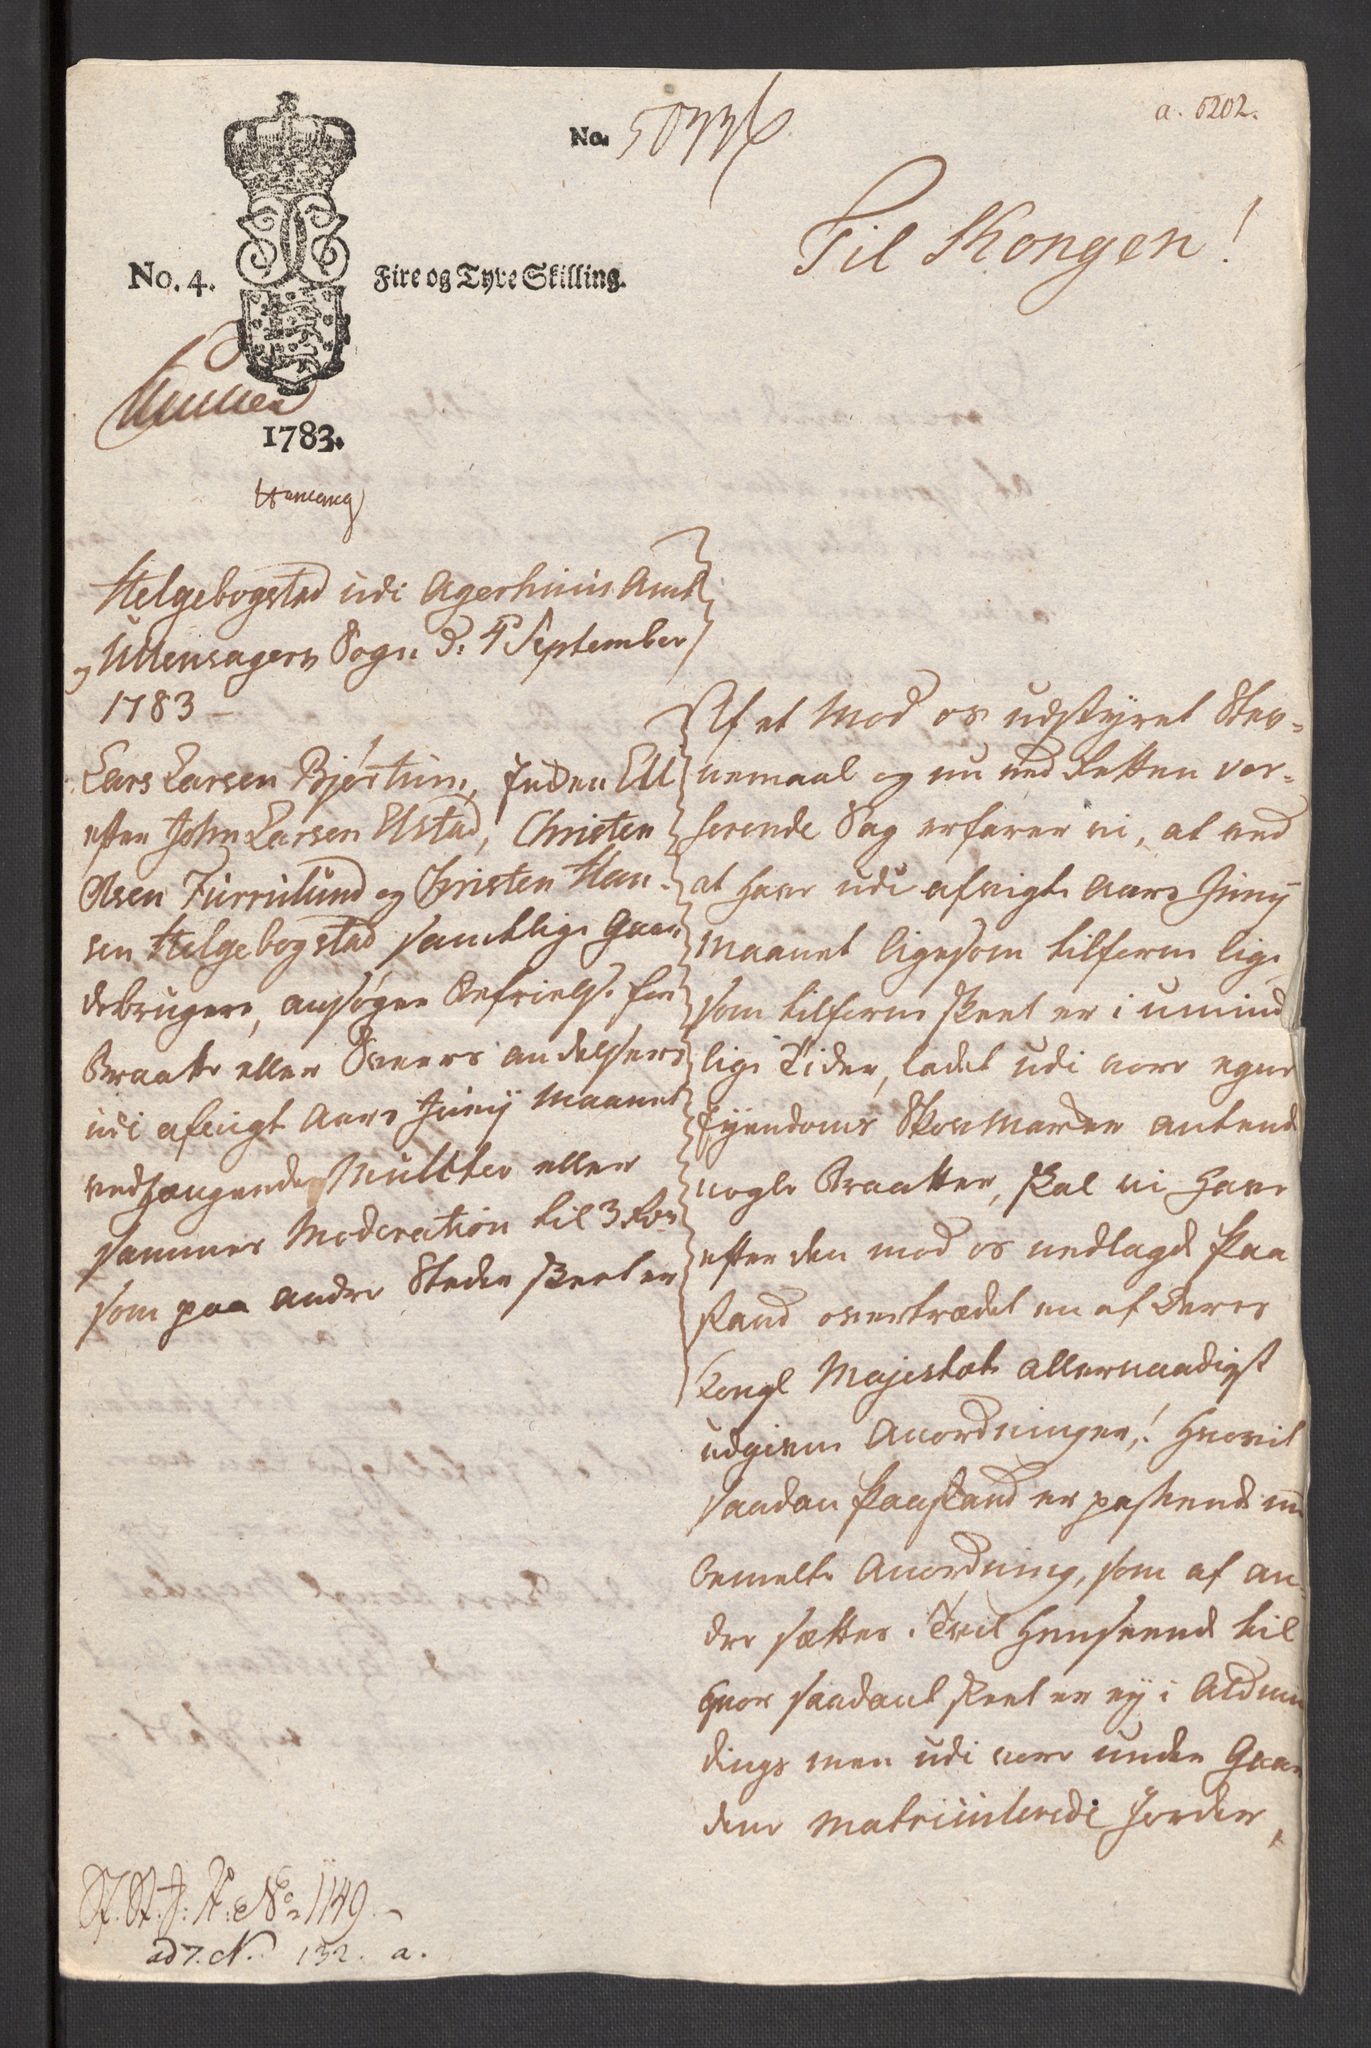 a. 5202.
No. 50336
Til Kongen!
No. 4. Fire og Tyve Skilling.
1783.
Helgebogstad udi Agerhuus Amt
og Ullensagers Sogn d: 4 September
1783 -
Lars Larsen Bjørtun, Enken Ell
efter John Larsen Elstad, Christen
Olsen Furrulund og Christen Han-
sen Helgebogstad samtlige Gaar
debrugere, ansøger Befrielse for
Braate eller Sveers andelsers
udi afvigt Aars Junij Maanet
vedhængende Mulkter eller
sammes Moderation til 3 Rdr
som paa andre Steder skeet er
Af et Mod os udstyret Stev-
nemaal og nu ved Retten ver-
serende Sag erfarer vi, at ved
at have udi afvigte Aars Junij
Maanet ligesom tilforn lige
som tilforn skeet er i umind
lige Tider, ladet udi vore egne
Ejendoms Skovmarker antende
nogle Braatter, skal vi have
efter den mod os nedlagde Paa
stand overtrædet en af Deres
Kongl Majestæts allernaadigst
udgivne Anordninger,! Hvorvit
saadan Paastand er passende
bemelte Anordning, som af an-
dre sættes i Tvil Henseende til
hvor saadant skeet er ej i Almin
dings men udi vore under Gaar
dene Matriculerede Jorder,
No 1149.-
ad 7. N. 132. a.